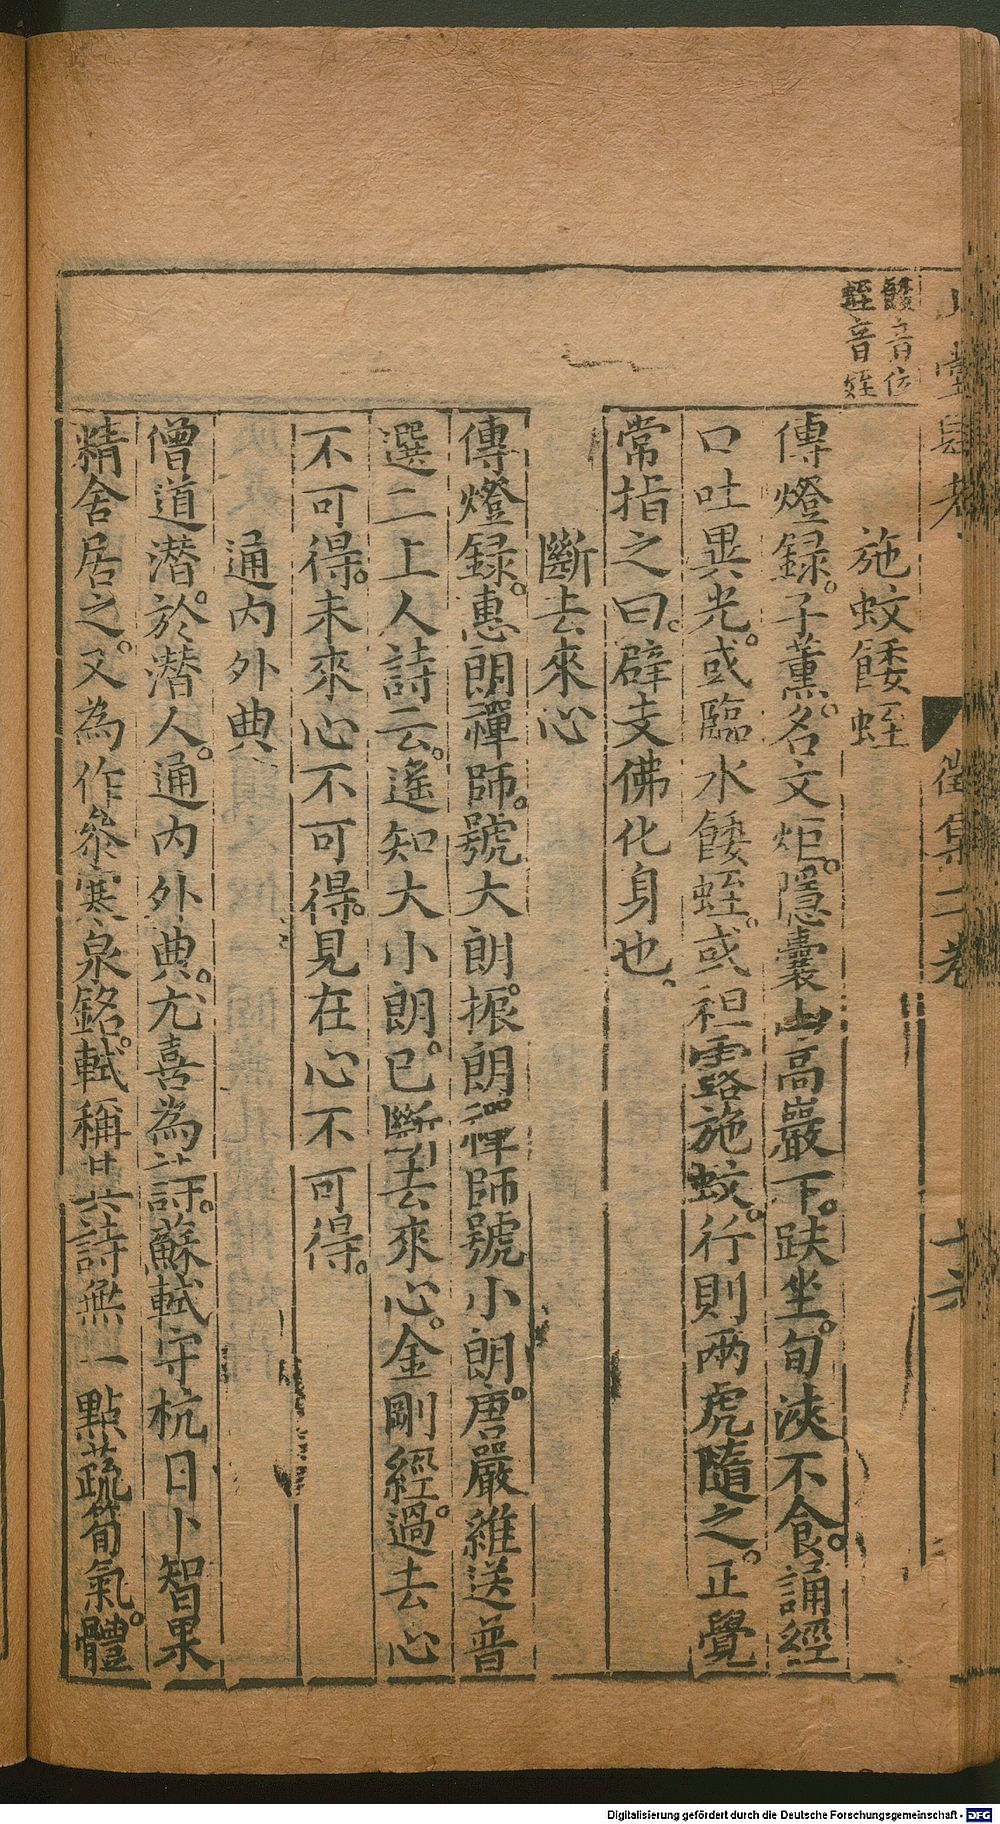 山堂肆考
徵集二卷
十六
餧音位
蛭音姪
施蚊餧蛭
傳燈録。子薫。名文炬。隱囊山高巖下。趺坐。旬浹不食。誦經
口吐異光。或臨水餧蛭。或袒露施蚊。行則兩虎隨之。正覺
常指之曰。辟支佛化身也。
斷去來心
傳燈録。惠朗禪師。號大朗。振朗禪師號小朗。唐嚴維送普
選二上人詩云。遙知大小朗。已斷去來心。金剛經。過去心
不可得。未來心不可得。見在心不可得。
通内外典
僧道潜。於潜人。通内外典。尤喜為詩。蘇軾守杭日卜智果
精舍居之。又為作叅寥泉銘。軾稱其詩無一點蔬筍氣。體
Digitalisierung gefördert durch die Deutsche Forschungsgemeinschaft - DFG